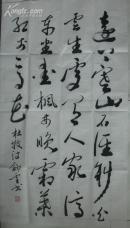 遠上寒山石径斜白
雲生處有人家停
车坐爱枫林晚霜葉
红於二月花
杜牧诗